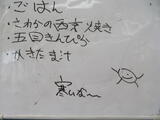 ・ごはん
・さわらの西京焼き
・五目きんぴら
・かきたま汁
寒いな〜